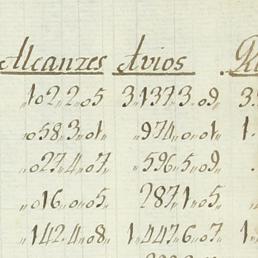 Alcanzes Avios
„102„2„05 3„137„3„09
„058„3„01 „974„0„01 1
„027„4„07 „596„5„09
„016„0„05 287„1„05
„142„4„08 1„447„6„07